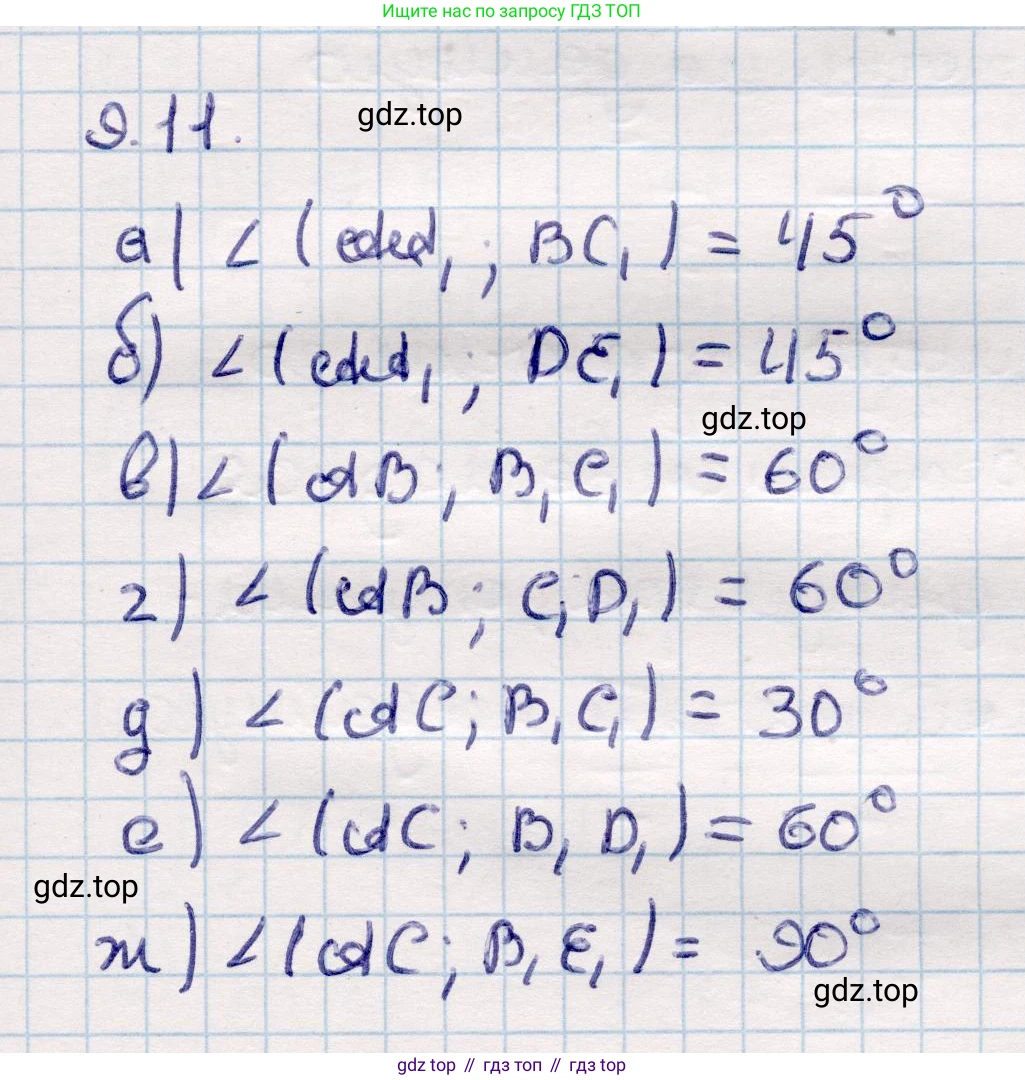 Ищите нас по запросу ГДЗ ТОП
9.11.
gdz.top
а) ∠(AA₁; BC₁) = 45°
б) ∠(AA₁; DE₁) = 45°
gdz.top
в) ∠(AB; B₁C₁) = 60°
г) ∠(AB; C₁D₁) = 60°
д) ∠(AC; B₁C₁) = 30°
е) ∠(AC; B₁D₁) = 60°
gdz.top
ж) ∠(AC; B₁E₁) = 90°
gdz.top
gdz top // гдз топ // gdz top